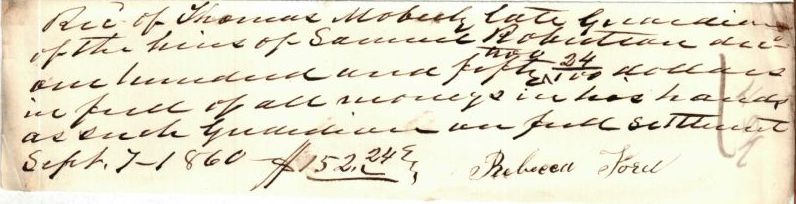 Rec. of Thomas Moberly late Guardian
of the heirs of Samuel Robertson dec
one hundred and fifty two & 24/100 dollars
in full of all moneys in his hands
as such Guardian on full settlement
Sept. 7-1860 $152.24 Rebecca Ford